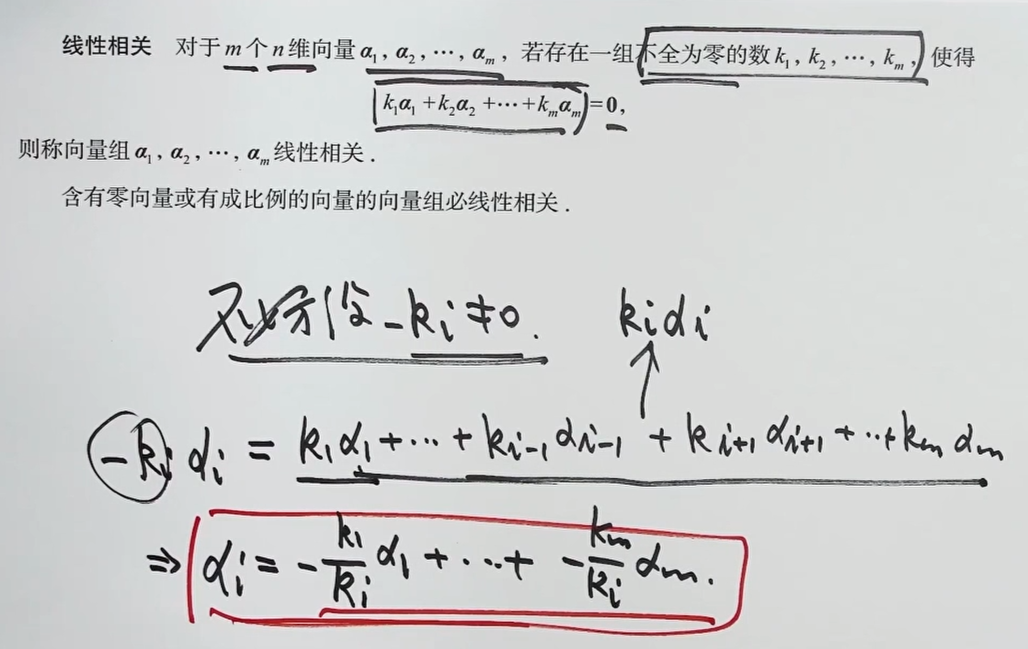 线性相关 对于 m 个 n 维向量 α₁, α₂, ⋯, αₘ, 若存在一组不全为零的数 k₁, k₂, ⋯, kₘ, 使得
k₁α₁+k₂α₂+⋯+kₘαₘ=0,
则称向量组 α₁, α₂, ⋯, αₘ 线性相关.
含有零向量或有成比例的向量的向量组必线性相关.
不妨设 -kᵢ≠0. kᵢαᵢ
-kᵢ αᵢ = k₁α₁+⋯+kᵢ₋₁αᵢ₋₁ + kᵢ₊₁αᵢ₊₁+⋯+kₘαₘ
⇒ αᵢ = -k₁/kᵢ α₁+⋯+ -kₘ/kᵢ αₘ.